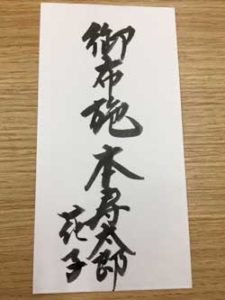 御布施
本寿太郎
花子